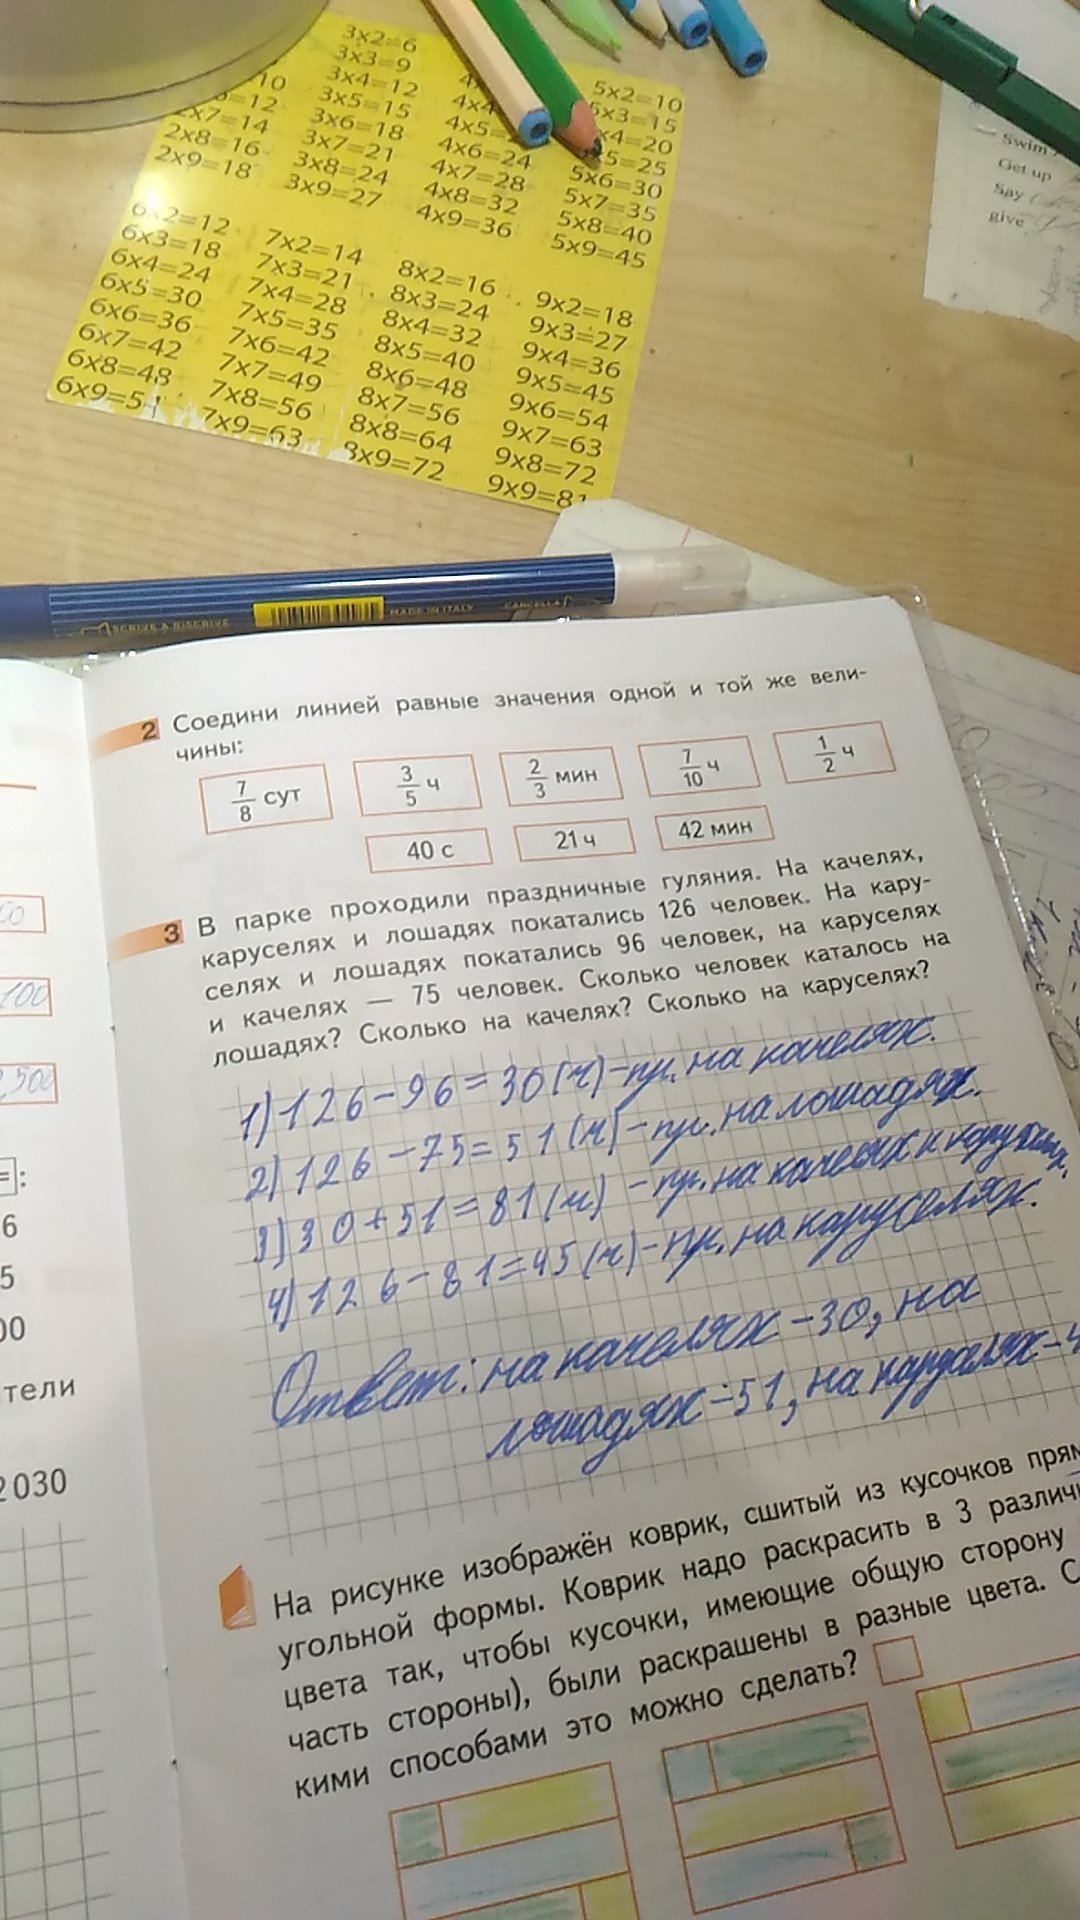 3x2=6
3x3=9
3x4=12
3x5=15
3x6=18
3x7=21
3x8=24
3x9=27
2x7=14
2x8=16
2x9=18
4x6=24
4x7=28
4x8=32
4x9=36
5x2=10
5x3=15
5x6=30
5x7=35
5x8=40
5x9=45
6x2=12
6x3=18
6x4=24
6x5=30
6x6=36
6x7=42
6x8=48
6x9=54
7x2=14
7x3=21
7x4=28
7x5=35
7x6=42
7x7=49
7x8=56
7x9=63
8x2=16
8x3=24
8x4=32
8x5=40
8x6=48
8x7=56
8x8=64
8x9=72
9x2=18
9x3=27
9x4=36
9x5=45
9x6=54
9x7=63
9x8=72
9x9=81
Swim
Get up
Say
give
SCRIVE & RISCRIVE
MADE IN ITALY
CANCELLA
2 Соедини линией равные значения одной и той же вели-
чины:
7/8 сут 3/5 ч 2/3 мин 7/10 ч 1/2 ч
40 с 21 ч 42 мин
3 В парке проходили праздничные гуляния. На качелях,
каруселях и лошадях покатались 126 человек. На кару-
селях и лошадях покатались 96 человек, на каруселях
и качелях — 75 человек. Сколько человек каталось на
лошадях? Сколько на качелях? Сколько на каруселях?
1) 126-96=30(ч)-пр. на качелях.
2) 126-75=51(ч)-пр. на лошадях.
3) 30+51=81(ч) -пр. на качелях и
4) 126-81=45(ч)-пр. на каруселях.
Ответ: на качелях -30, на
лошадях -51, на каруселях-4
На рисунке изображён коврик, сшитый из кусочков прям
угольной формы. Коврик надо раскрасить в 3 различн
цвета так, чтобы кусочки, имеющие общую сторону
часть стороны), были раскрашены в разные цвета. С
кими способами это можно сделать?
100
2500
=:
6
5
00
тели
2030